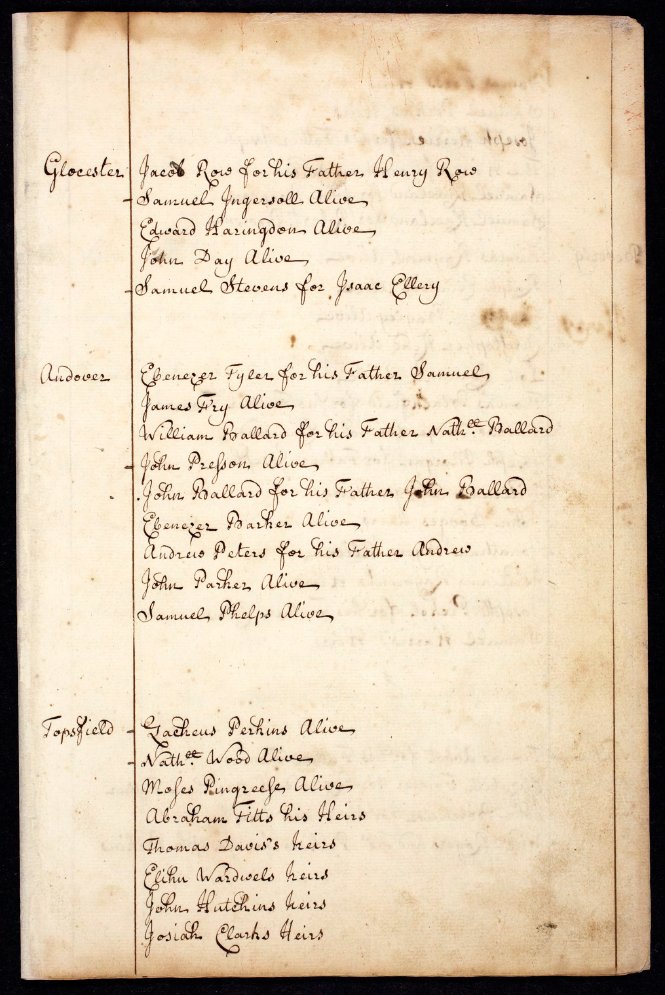 Glocester Jacob Row for his Father Henry Row
- Samuel Ingersoll Alive
Edward Haringdon Alive
John Day Alive
- Samuel Stevens for Isaac Ellery
Andover Ebenezer Tyler for his Father Samuel
James Fry Alive
William Ballard for his Father Nathll. Ballard
- John Presson Alive
John Ballard for his Father John Ballard
Ebenezer Barker Alive
Andrew Peters for his Father Andrew
John Parker Alive
Samuel Phelps Alive
Topsfield - Zacheus Perkins Alive
- Nathll. Wood Alive
Moses Pingreese Alive
Abraham Fitts his Heirs
Thomas Davis's heirs
Elihu Wardwels heirs
John Hutchins heirs
Josiah Clarks Heirs